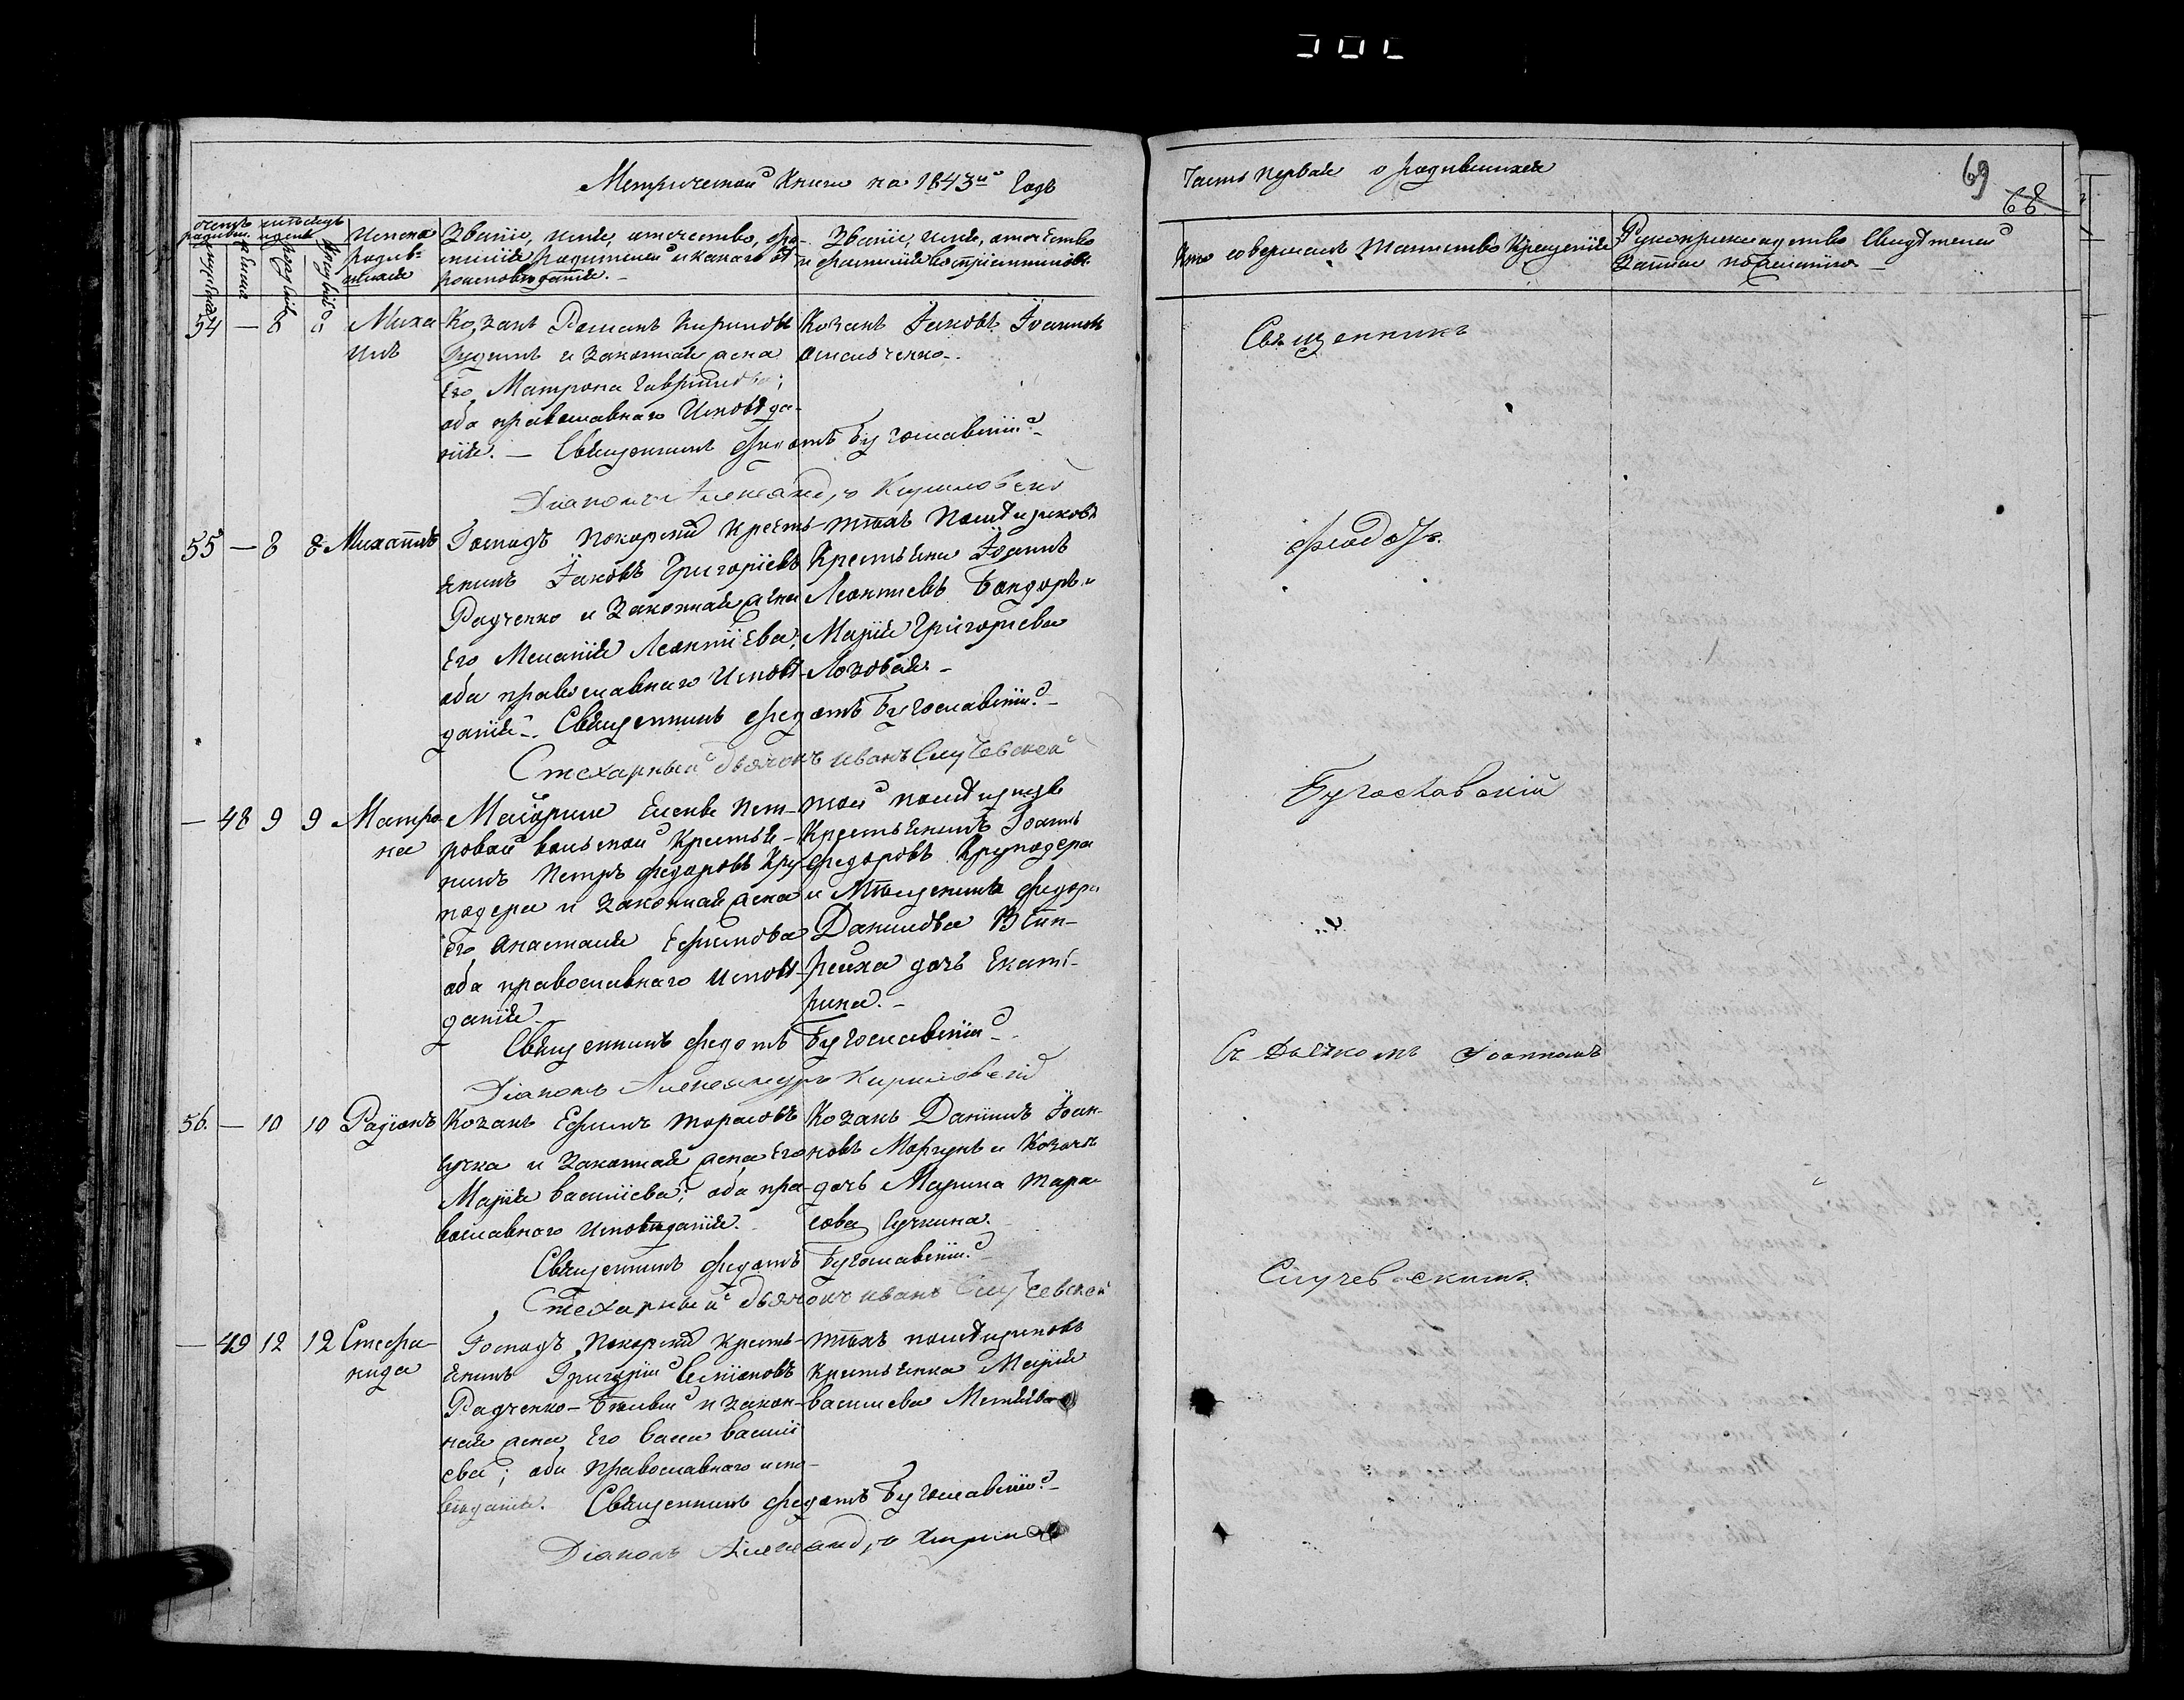 Метрической Книги на 1843й Годъ
Часть Первая о родившихся
69
68
Счетъ родивш.
мужеска
женска
мѣсяцъ и день
рожденія
крещенія
Имена родив-
шихся
Званіе, имя, отчество, фа-
милія родителей и какого вѣ-
роисповѣданія.
Званіе, имя, отчество
и фамилія воспріемниковъ.
Кто совершалъ таинство Крещенія
Рукоприкладство свидѣтелей
записи по желанію
54 — 8 8 Миха
илъ
Козакъ Романъ Кириловъ
и законная жена
Его Матрона Гаврилова;
оба православнаго Исповѣда-
нія. — Священникъ Федотъ Бугославскій
Козакъ Іаковъ Іоанновъ
Діаконъ Александръ Кириловскій
55 — 8 8 Михаилъ
Господъ Покорскій Кресть-
янинъ Іаковъ Григоріевъ
Радченко и Законная жена
Его Меланія Леонтіева;
оба православнаго Исповѣ-
данія. Священникъ Федотъ Бугославскій
тѣхъ Помѣщиковъ
Крестьяне Іоаннъ
Леонтіевъ Бондарь и
Марія Григорьева
Лозовая.
Стихарный дьячокъ Иванъ Случевской
— 48 9 9 Матро-
на
Маіорши Елены Пет-
ровой Крестья-
нинъ Петръ Федоровъ Кру-
подера и законная жена
Его Анастасія Ефимова
оба православнаго Исповѣ-
данія.
той помѣщицы
Крестьянинъ Іоаннъ
Федоровъ Круподера
и Федора
Данилова
дочь Екате-
рина.
Священникъ Федотъ Бугославскій
Діаконъ Александръ Кириловскій
56. — 10 10 Радіонъ
Козакъ Ефимъ Тарасовъ
Сучка и Законная жена Его
Марія Васильева; оба пра-
вославнаго исповѣданія.
Козакъ Даніилъ Іоан-
новъ Моргунъ и Козачья
дочь Марина Тара-
сова Сучкина.
Священникъ Федотъ Бугославскій
Стихарный дьячокъ Иванъ Случевской
— 49 12 12 Стефа-
нида
Господъ Покорскій кресть-
янинъ Григорій Семіоновъ
Радченко и закон-
ная жена Его Васса Василі
ева; оба Православнаго испо-
вѣданія. Священникъ Федотъ Бугославскій
тѣхъ помѣщиковъ
крестьянка Марія
Васильева
Діаконъ Александръ
Священникъ
Феодотъ
Бугославскій
Съ Дьячкомъ Іоанномъ
Случевскимъ